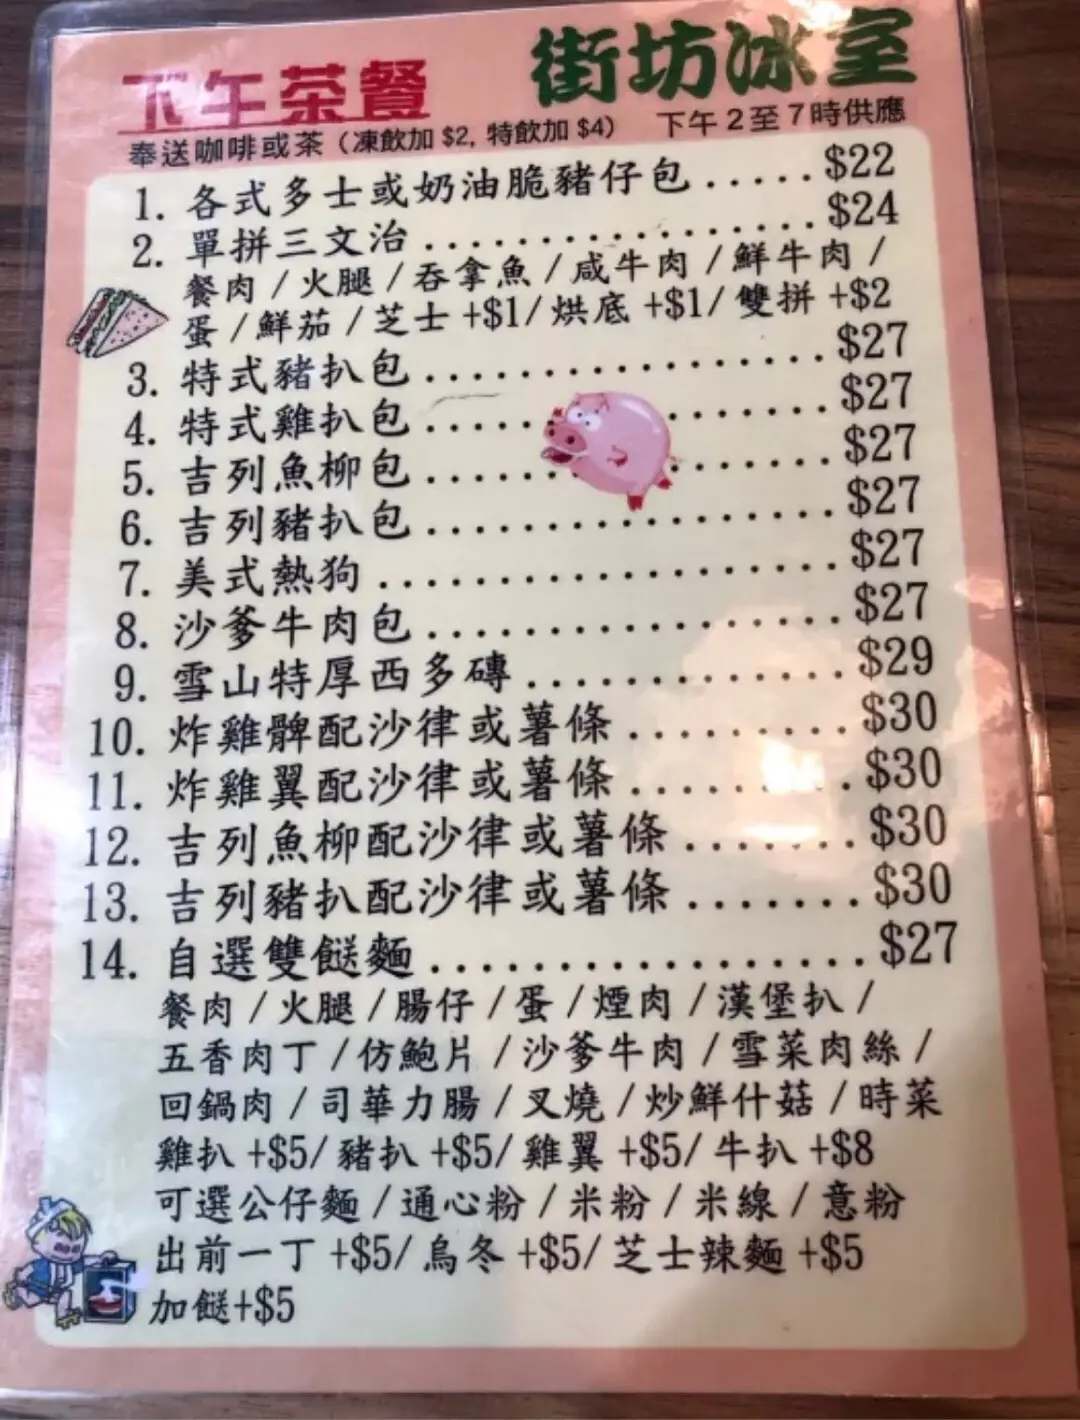 下午茶餐 街坊冰室
奉送咖啡或茶（凍飲加 $2, 特飲加 $4） 下午 2 至 7 時供應
1. 各式多士或奶油脆豬仔包.....$22
2. 單拼三文治..................$24
餐肉 / 火腿 / 吞拿魚 / 咸牛肉 / 鮮牛肉 /
蛋 / 鮮茄 / 芝士 +$1/ 烘底 +$1/ 雙拼 +$2
3. 特式豬扒包..................$27
4. 特式雞扒包..................$27
5. 吉列魚柳包..................$27
6. 吉列豬扒包..................$27
7. 美式熱狗..................$27
8. 沙爹牛肉包..................$27
9. 雪山特厚西多磚.............$29
10. 炸雞髀配沙律或薯條.........$30
11. 炸雞翼配沙律或薯條.........$30
12. 吉列魚柳配沙律或薯條.......$30
13. 吉列豬扒配沙律或薯條.......$30
14. 自選雙餸麵.................$27
餐肉 / 火腿 / 腸仔 / 蛋 / 煙肉 / 漢堡扒 /
五香肉丁 / 仿鮑片 / 沙爹牛肉 / 雪菜肉絲 /
回鍋肉 / 司華力腸 / 叉燒 / 炒鮮什菇 / 時菜
雞扒 +$5/ 豬扒 +$5/ 雞翼 +$5/ 牛扒 +$8
可選公仔麵 / 通心粉 / 米粉 / 米線 / 意粉
出前一丁 +$5/ 烏冬 +$5/ 芝士辣麵 +$5
加餸+$5